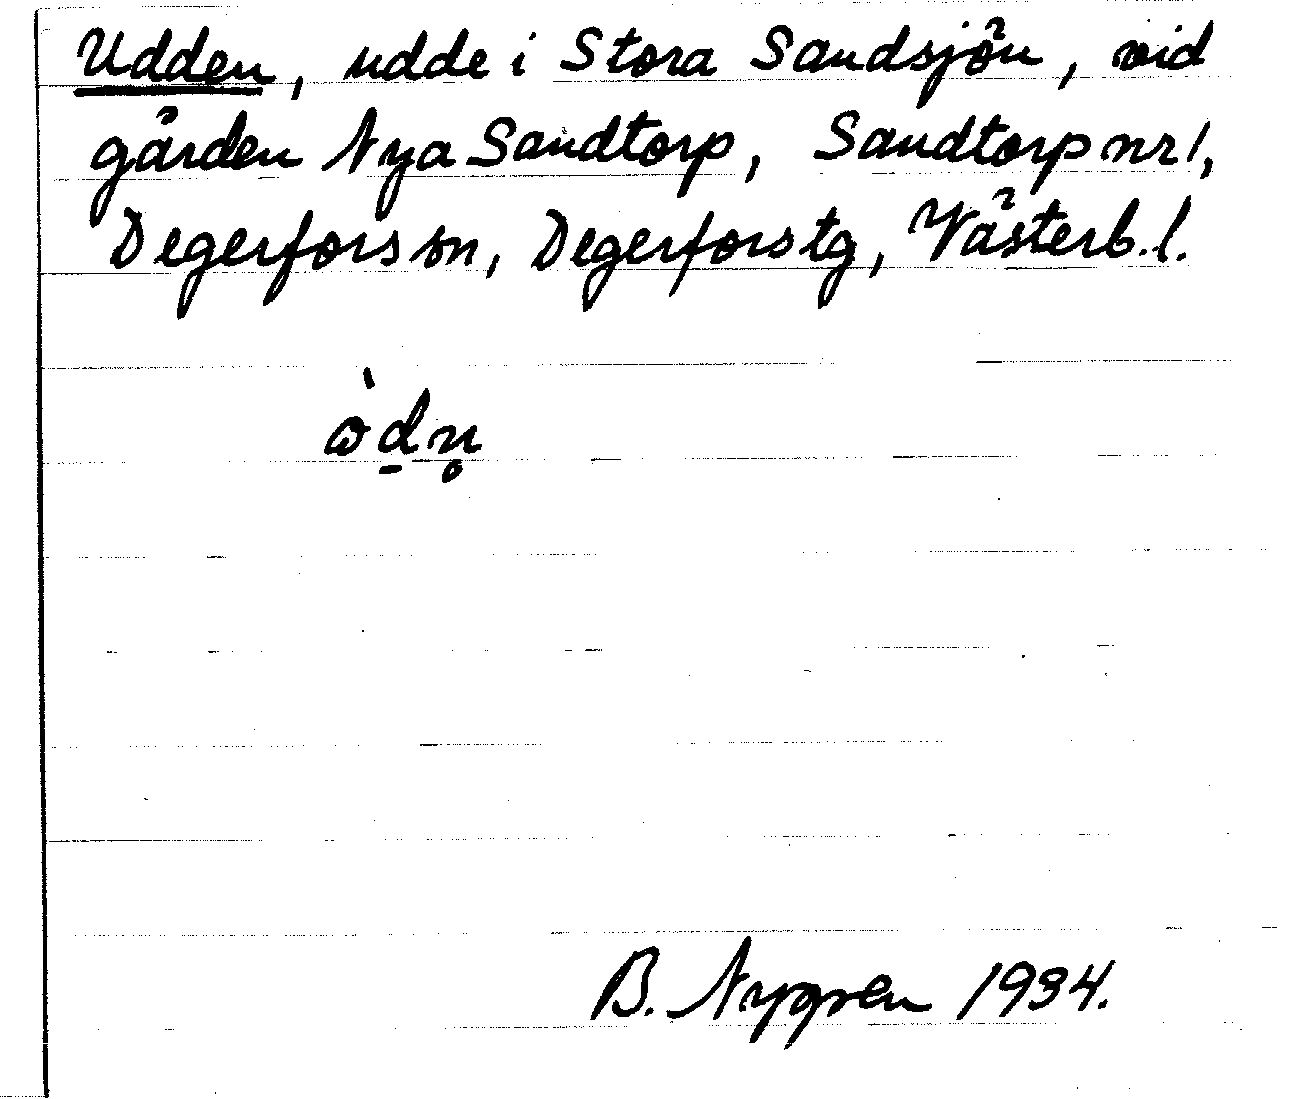 Udden, udde i Stora Sandsjön, vid
gården Nya Sandtorp, Sandtorp nr 1,
Degerfors sn, Degerfors tg, Västerb. l.
ò̱dn̥
B. Nygren 1934.